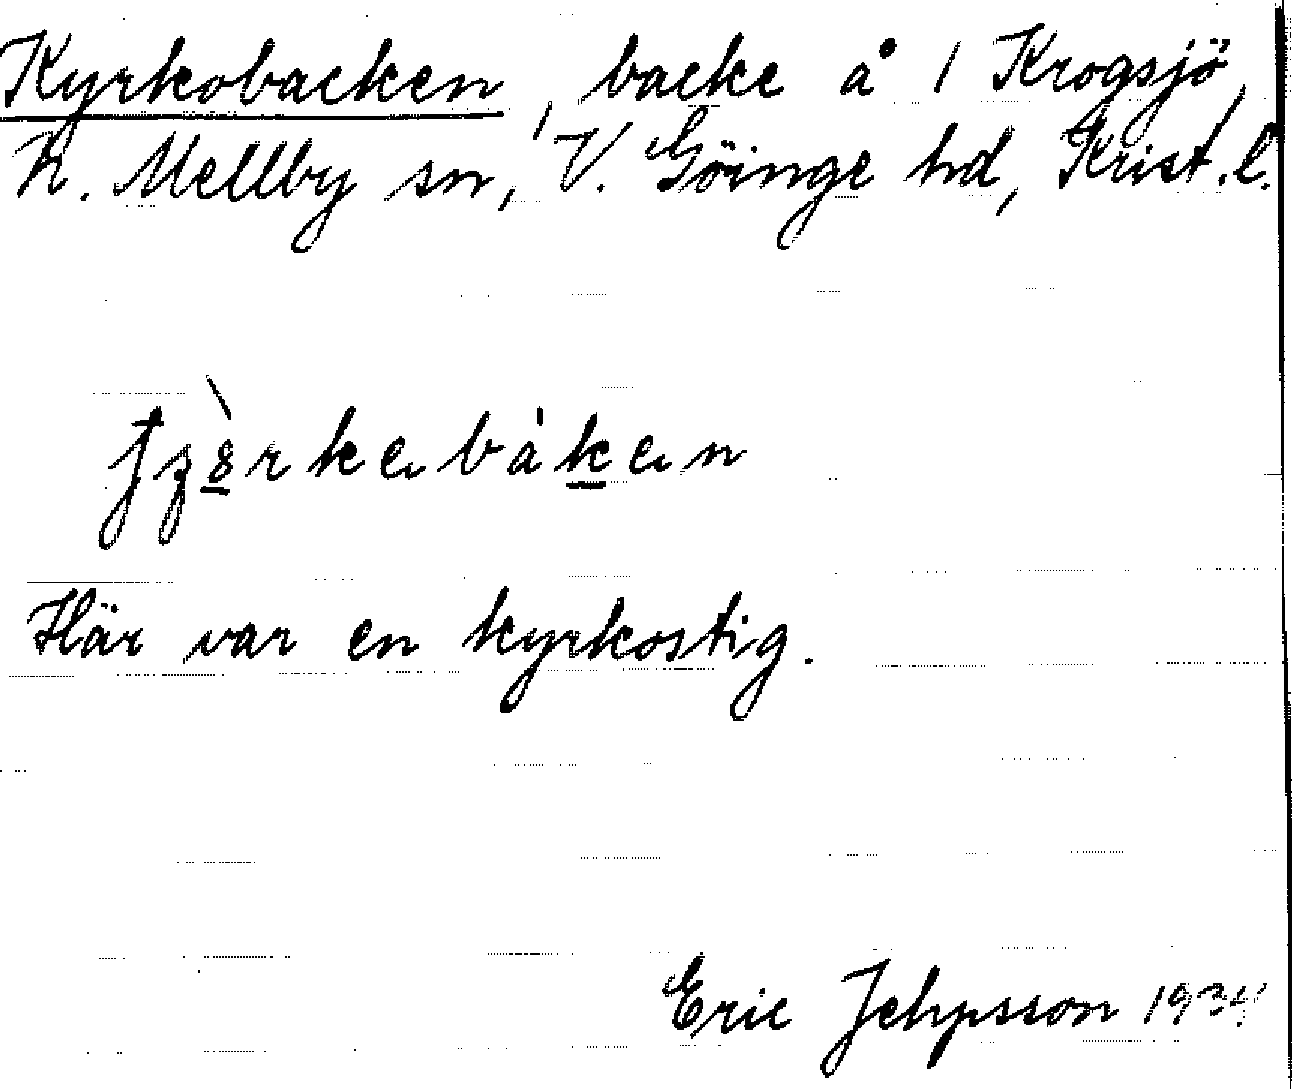 Kyrkobacken, backe å 1 Krogsjö,
N. Mellby sn, V. Göinge hd, Krist. l.
Här var en kyrkostig.
Eric Jehpsson 1934